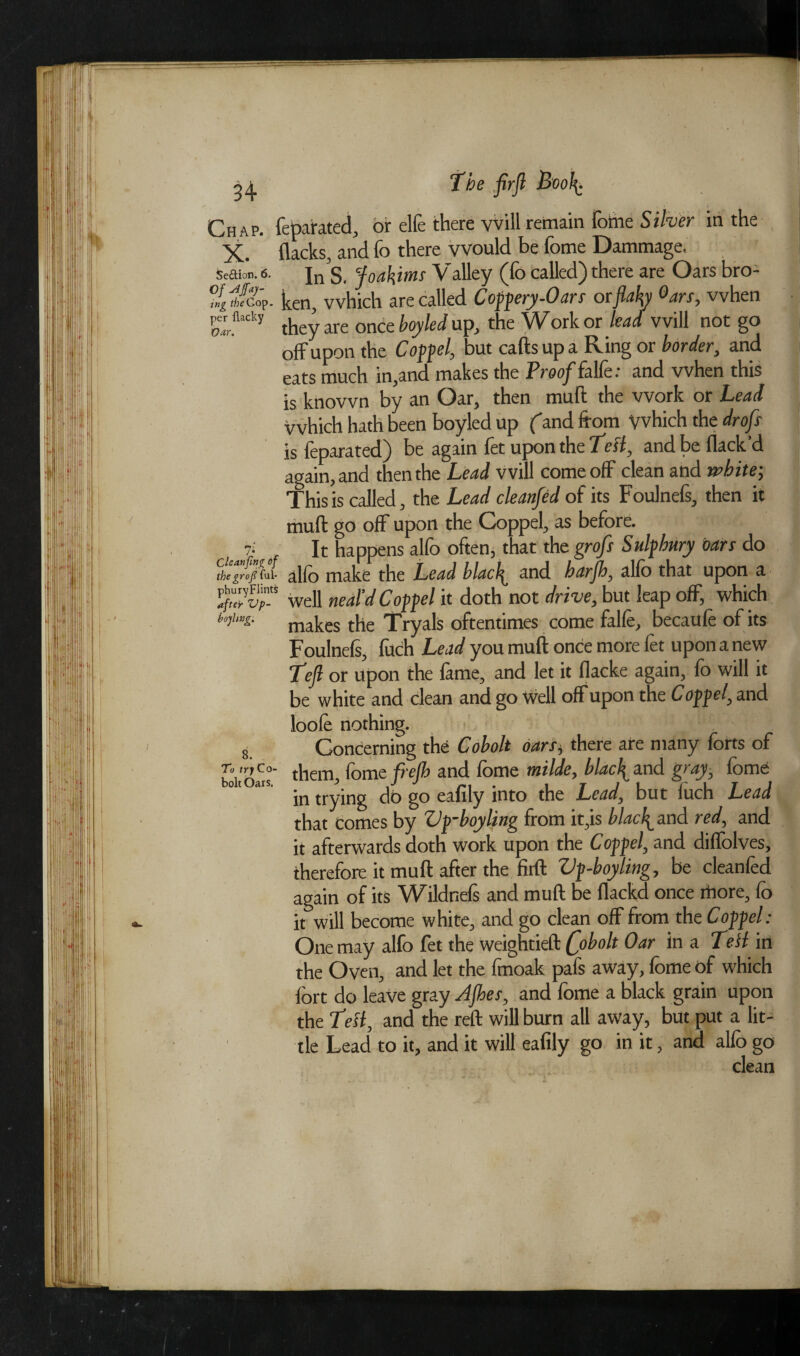 34
The firſt Book.
Chap. ſeparated, or elſe there will remain ſome Silver in the
X. ſlacks, and ſo there would be ſome Dammage.
Section. 6. In S. Joakims Valley (ſo called) there are Oars bro-
Of Aſſay-
ing the Cop- ken, which are called Coppery-Oars or flaky Oars, when
per flacky
Oar. they are once boyled up, the Work or lead will not go
off upon the Coppel, but caſts up a Ring or border, and
eats much in,and makes the Proof falſe: and when this
is known by an Oar, then muſt the work or Lead
which hath been boyled up (and from which the droſs
is ſeparated) be again ſet upon the Teſt, and be ſlack'd
again, and then the Lead will come off clean and white;
This is called, the Lead cleanſed of its Foulneſs, then it
muſt go off upon the Coppel, as before.
7. It happens alſo often, that the groſs Sulphury oars do
Cleanſing of
the groſs ſul- alſo make the Lead black and harſh, alſo that upon a
phuryFlints
after Vp- well neal'd Coppel it doth not drive, but leap off, which
boyling. makes the Tryals oftentimes come falſe, becauſe of its
Foulneſs, ſuch Lead you muſt once more ſet upon a new
Teſt or upon the ſame, and let it ſlacke again, ſo will it
be white and clean and go well off upon the Coppel, and
looſe nothing.
8. Concerning the Cobolt oars, there are many ſorts of
To try Co-
bolt Oars. them, ſome freſh and ſome milde, black and gray, ſome
in trying do go eaſily into the Lead, but ſuch Lead
that comes by Vp-boyling from it,is black and red, and
it afterwards doth work upon the Coppel, and diſſolves,
therefore it muſt after the firſt Vp-boyling, be cleanſed
again of its Wildneſs and muſt be ſlackd once more, ſo
it will become white, and go clean off from the Coppel:
One may alſo ſet the weightieſt Cobolt Oar in a Teſt in
the Oven, and let the ſmoak paſs away, ſome of which
ſort do leave gray Aſhes, and ſome a black grain upon
the Teſt, and the reſt will burn all away, but put a lit-
tle Lead to it, and it will eaſily go in it, and alſo go
clean